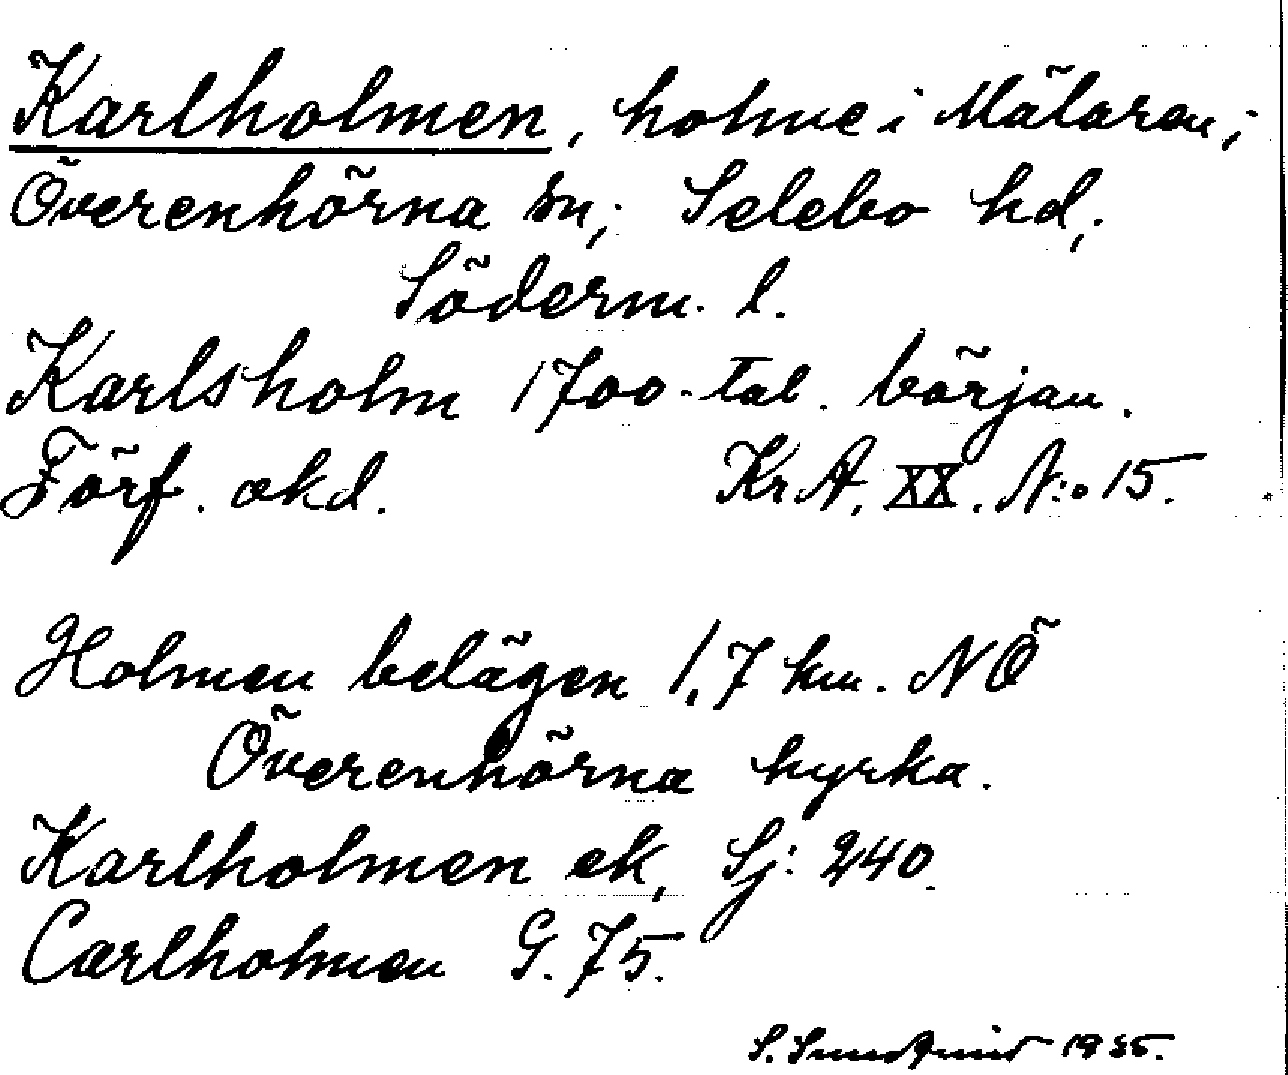 Karlholmen, holme i Mälaren;
Överenhörna sn; Selebo hd;
Söderm. l.
Karlsholm 1700-tal. början.
Förf. okd. Kr.A. XX. N:o 15.
Holmen belägen 1,7 km. NÖ
Överenhörna kyrka.
Karlholmen ek, Sj: 240.
Carlholmen G. 75.
S. Sundqvist 1935.